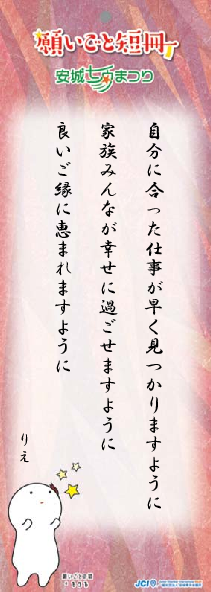 願いごと短冊
安城七夕まつり
自分に合った仕事が早く見つかりますように
家族みんなが幸せに過ごせますように
良いご縁に恵まれますように
りえ
願いごと妖精
きーぼー
JCI